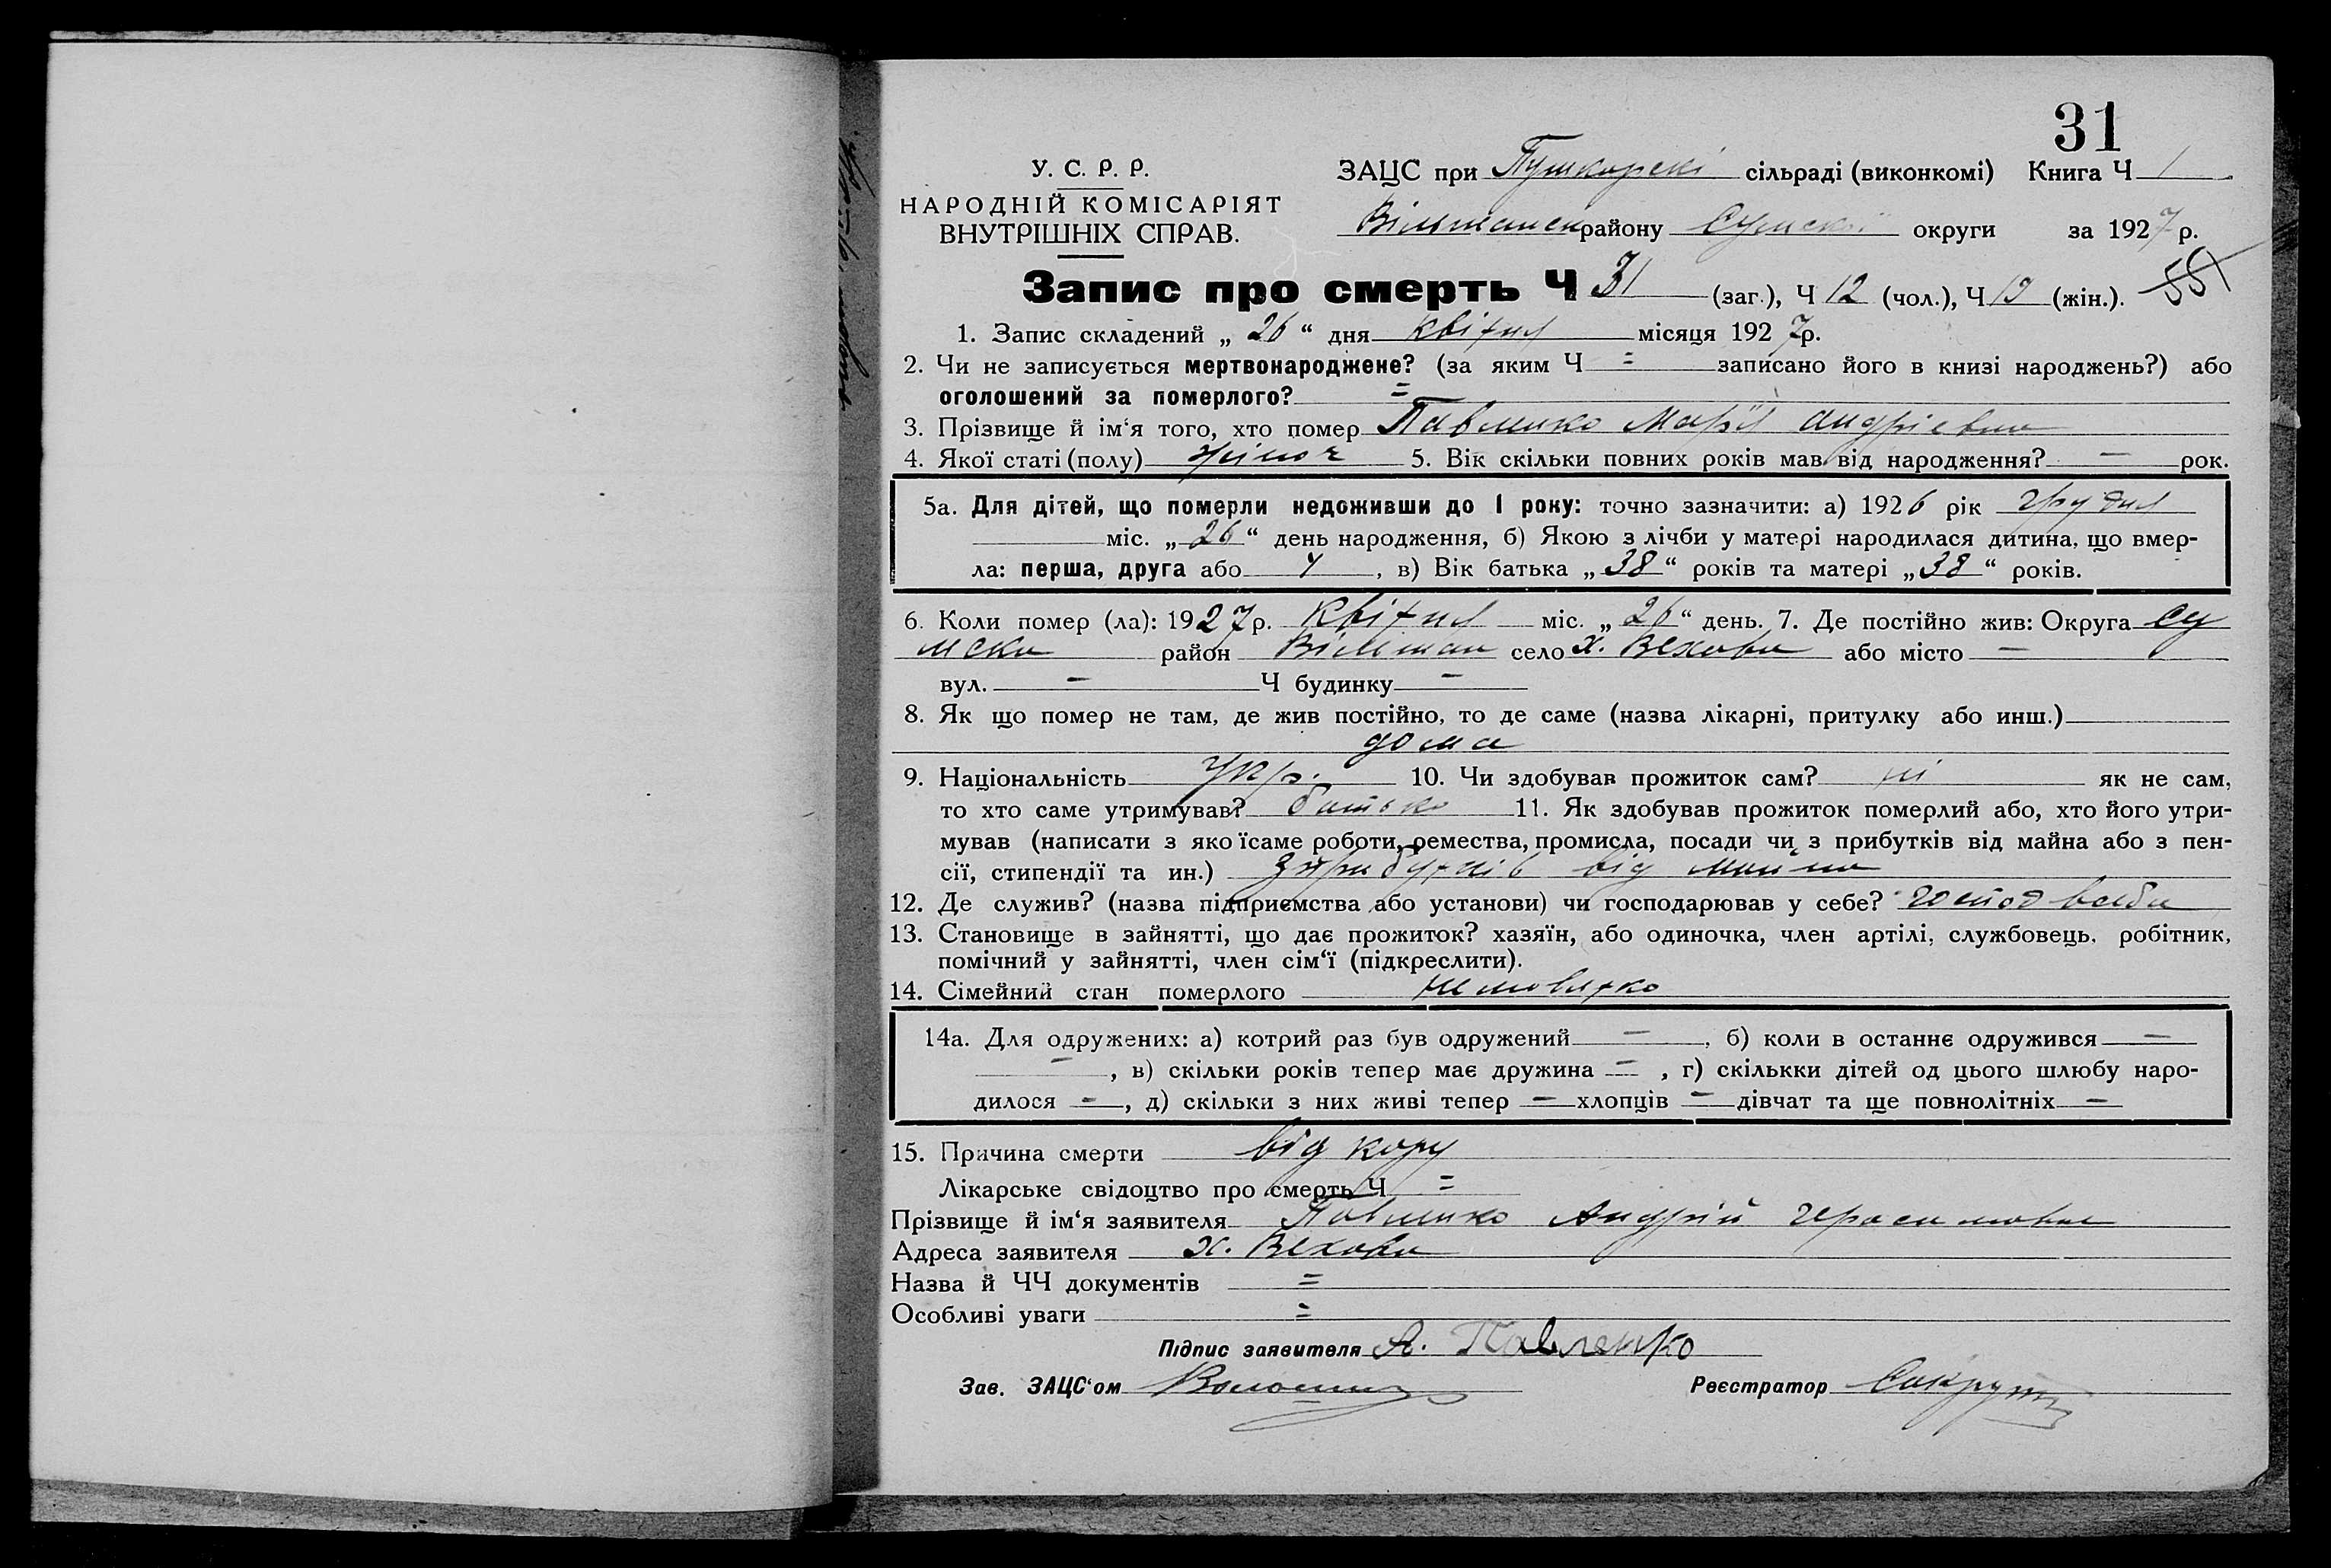 31
У. С. Р. Р.
НАРОДНІЙ КОМІСАРІЯТ
ВНУТРІШНІХ СПРАВ.
ЗАЦС при Пушкарскі сільраді (виконкомі) Книга Ч 1
Вільшанск району Сумскої округи за 1927 р.
Запис про смерть Ч 31 (заг.), Ч 12 (чол.), Ч 19 (жін.).
1. Запис складений „ 26 “ дня квітня місяця 1927р.
2. Чи не записується мертвонароджене? (за яким Ч = записано його в книзі народжень?) або
оголошений за померлого? =
3. Прізвище й ім‘я того, хто помер Павленко Марія Андріевна
4. Якої статі (полу) жіноч 5. Вік скільки повних років мав від народження? — рок.
5а. Для дітей, що померли недоживши до 1 року: точно зазначити: а) 1926 рік грудня
міс. „ 26 “ день народження, б) Якою з лічби у матері народилася дитина, що вмер-
ла: перша, друга або 4, в) Вік батька „ 38 “ років та матері „ 38 “ років.
6. Коли помер (ла): 1927р. квітня міс. „ 26 “ день. 7. Де постійно жив: Округа Су
мска район Вільшан село х. Вехова або місто —
вул. — Ч будинку —
8. Як що помер не там, де жив постійно, то де саме (назва лікарні, притулку або инш.)
дома
9. Національність Укр. 10. Чи здобував прожиток сам? ні як не сам,
то хто саме утримував? батько 11. Як здобував прожиток померлий або, хто його утри-
мував (написати з якоїсаме роботи, ремества, промисла, посади чи з прибутків від майна або з пен-
сії, стипендії та ин.) з прибутків від майна
12. Де служив? (назва підприємства або установи) чи господарював у себе?
13. Становище в зайнятті, що дає прожиток? хазяїн, або одиночка, член артілі, службовець, робітник,
помічний у зайнятті, член сім‘ї (підкреслити).
14. Сімейний стан померлого немовлятко
14а. Для одружених: а) котрий раз був одружений —, б) коли в останнє одружився —
—, в) скільки років тепер має дружина —, г) скількки дітей од цього шлюбу наро-
дилося —, д) скільки з них живі тепер — хлопців — дівчат та ще повнолітніх —
15. Причина смерти від кору
Лікарське свідоцтво про смерть Ч =
Прізвище й ім‘я заявителя Павленко Андрій Герасимович
Адреса заявителя х. Вехова
Назва й ЧЧ документів =
Особливі уваги =
Підпис заявителя А. Павленко
Зав. ЗАЦС‘ом Реєстратор